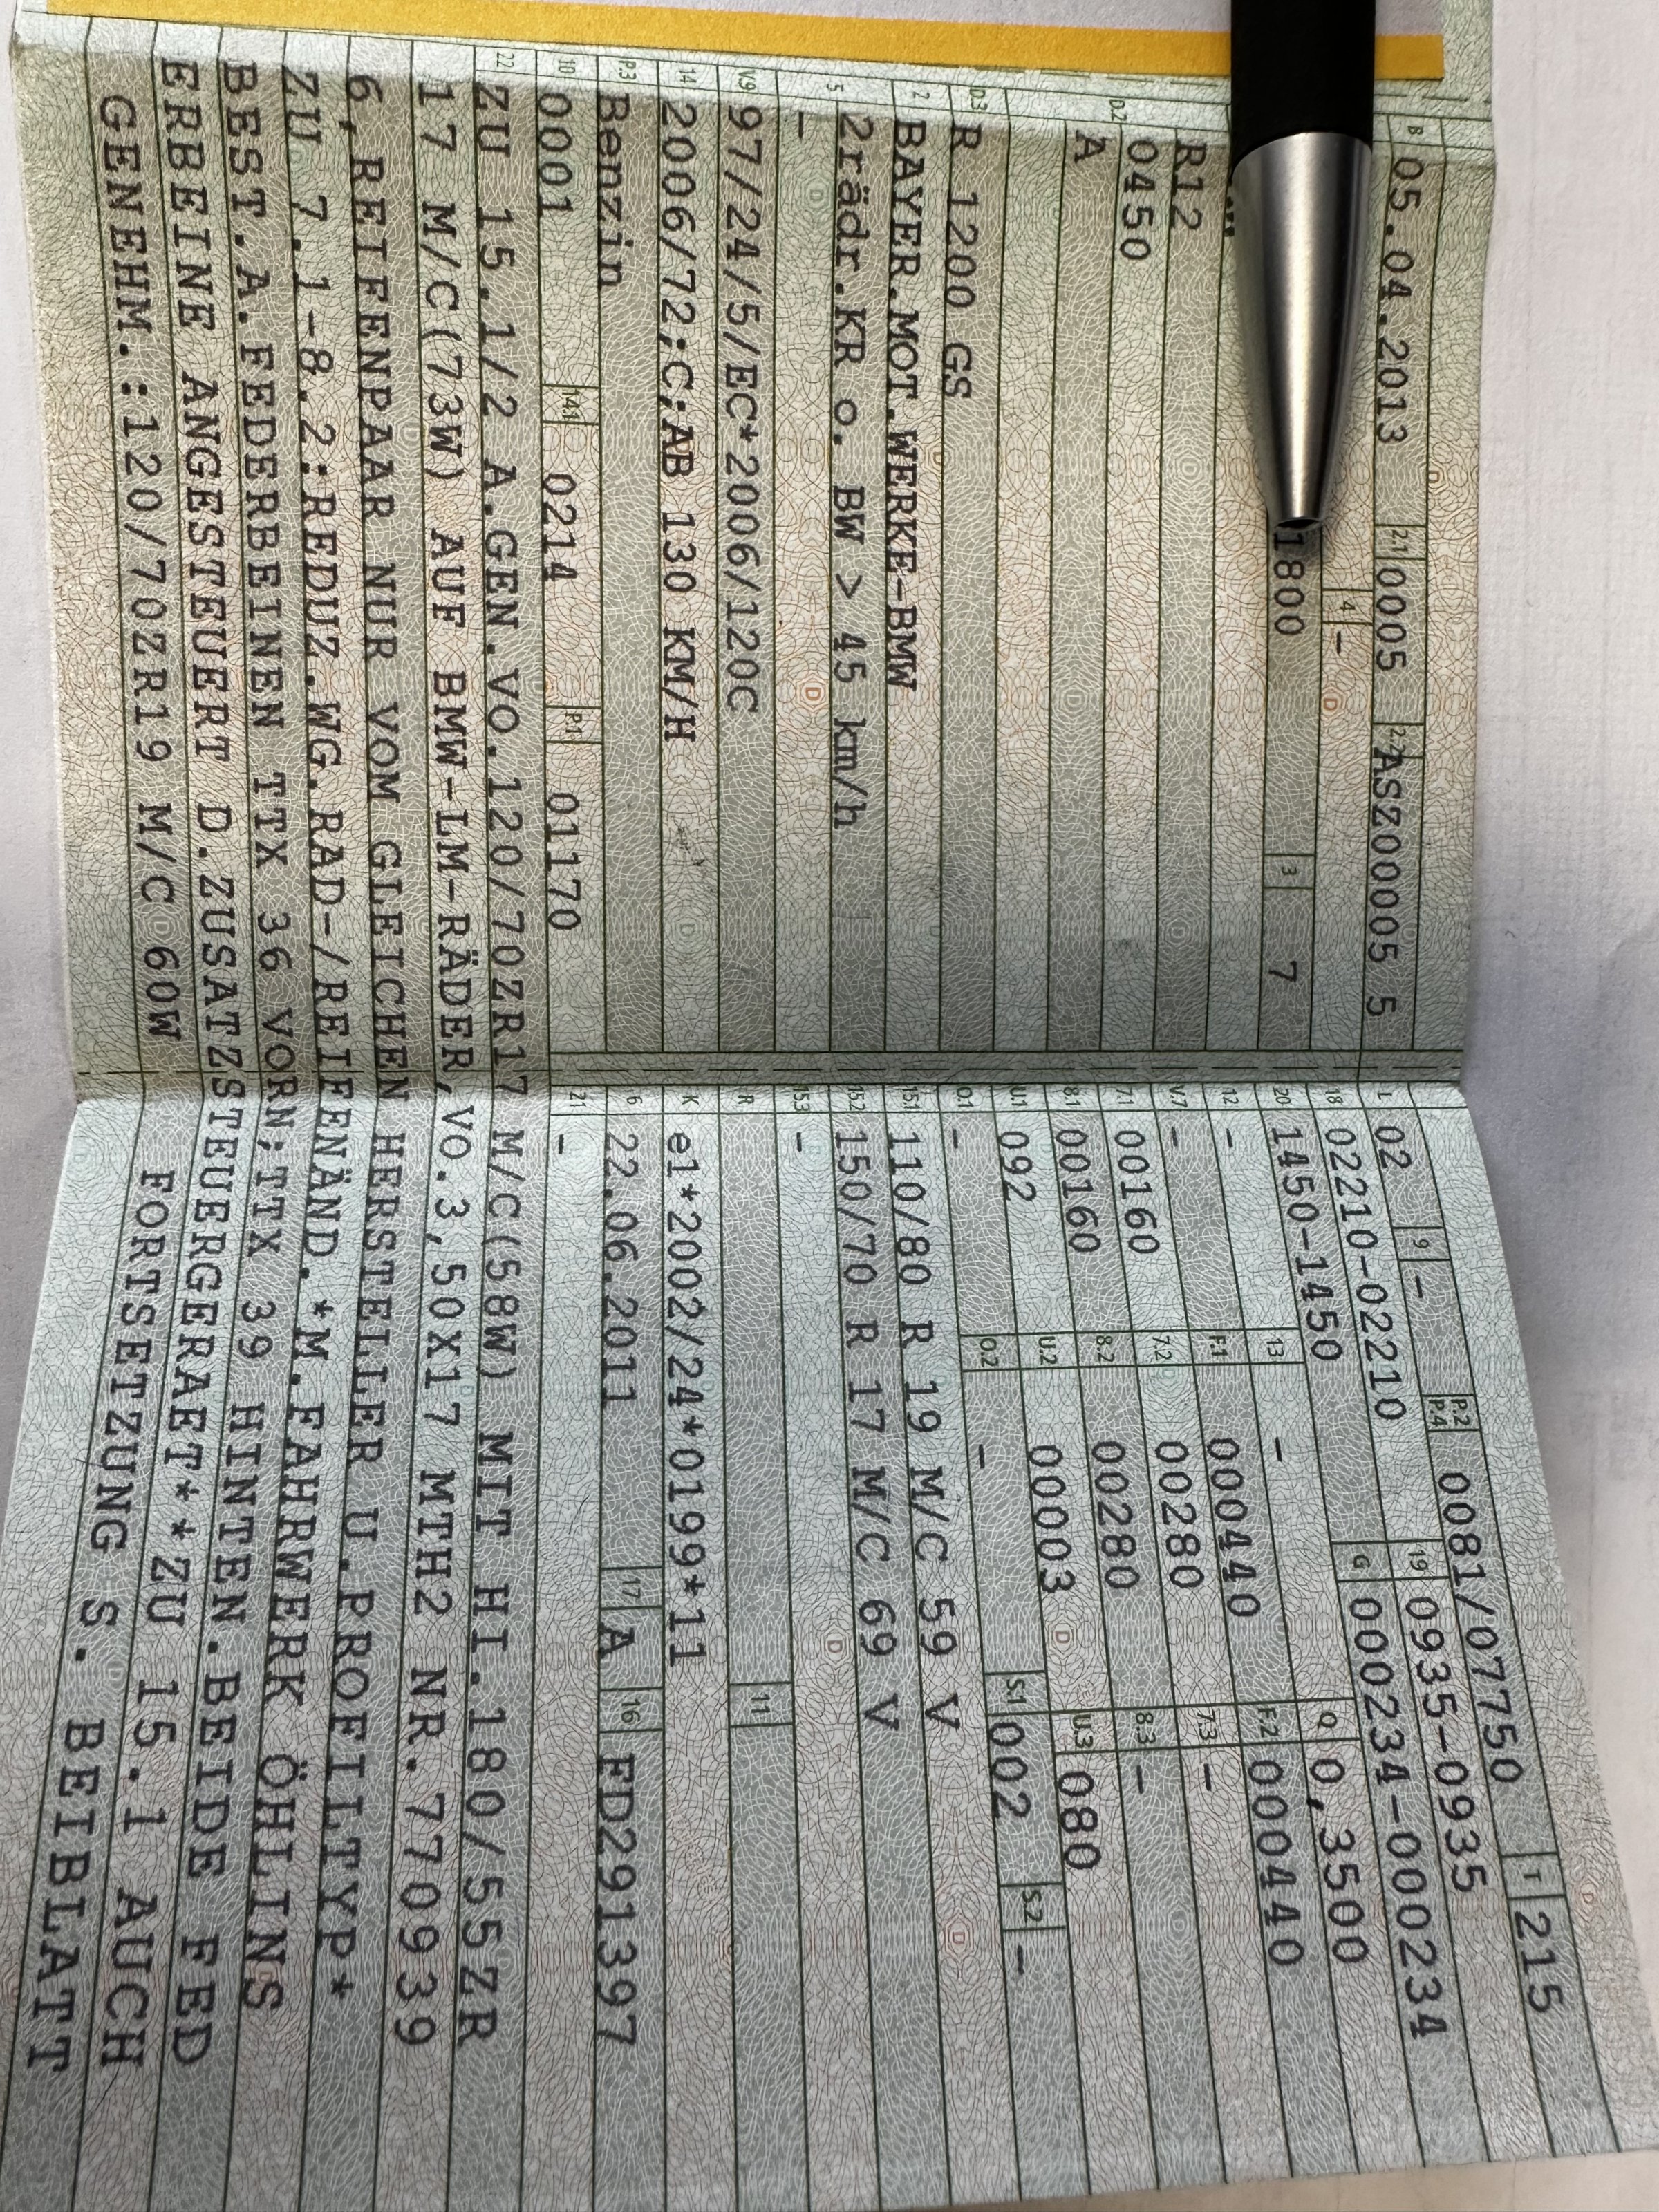 B 05.04.2013 2.1 0005 2.2 ASZ00005 5
4 -
1800 3 7
R12
D.2 0450
A
D.3 R 1200 GS
2 BAYER.MOT.WERKE-BMW
5 2rädr.KR o. BW > 45 km/h
-
V.9 97/24/5/EC*2006/120C
14 2006/72;C;AB 130 KM/H
P.3 Benzin
10 0001 14.1 0214 P.1 01170
L 02 9 - P.2 P.4 0081/07750 T 215
18 02210-02210 19 0935-0935
20 1450-1450 G 000234-000234
12 - 13 - Q 0,3500
V.7 - F.1 000440 F.2 000440
7.1 00160 7.2 00280 7.3 -
8.1 00160 8.2 00280 8.3 -
U.1 092 U.2 00003 U.3 080
O.1 - O.2 - S.1 002 S.2 -
15.1 110/80 R 19 M/C 59 V
15.2 150/70 R 17 M/C 69 V
15.3 -
R 11
K e1*2002/24*0199*11
6 22.06.2011 17 A 16 FD291397
21 -
22 ZU 15.1/2 A.GEN.VO.120/70ZR17 M/C(58W) MIT HI.180/55ZR
17 M/C(73W) AUF BMW-LM-RÄDER,VO.3,50X17 MTH2 NR. 7709939
6,REIFENPAAR NUR VOM GLEICHEN HERSTELLER U.PROFILTYP*
ZU 7.1-8.2:REDUZ.WG.RAD-/REIFENÄND.*M.FAHRWERK ÖHLINS
BEST.A.FEDERBEINEN TTX 36 VORN;TTX 39 HINTEN.BEIDE FED
ERBEINE ANGESTEUERT D.ZUSATZSTEUERGERAET**ZU 15.1 AUCH
GENEHM.:120/70ZR19 M/C 60W FORTSETZUNG S. BEIBLATT